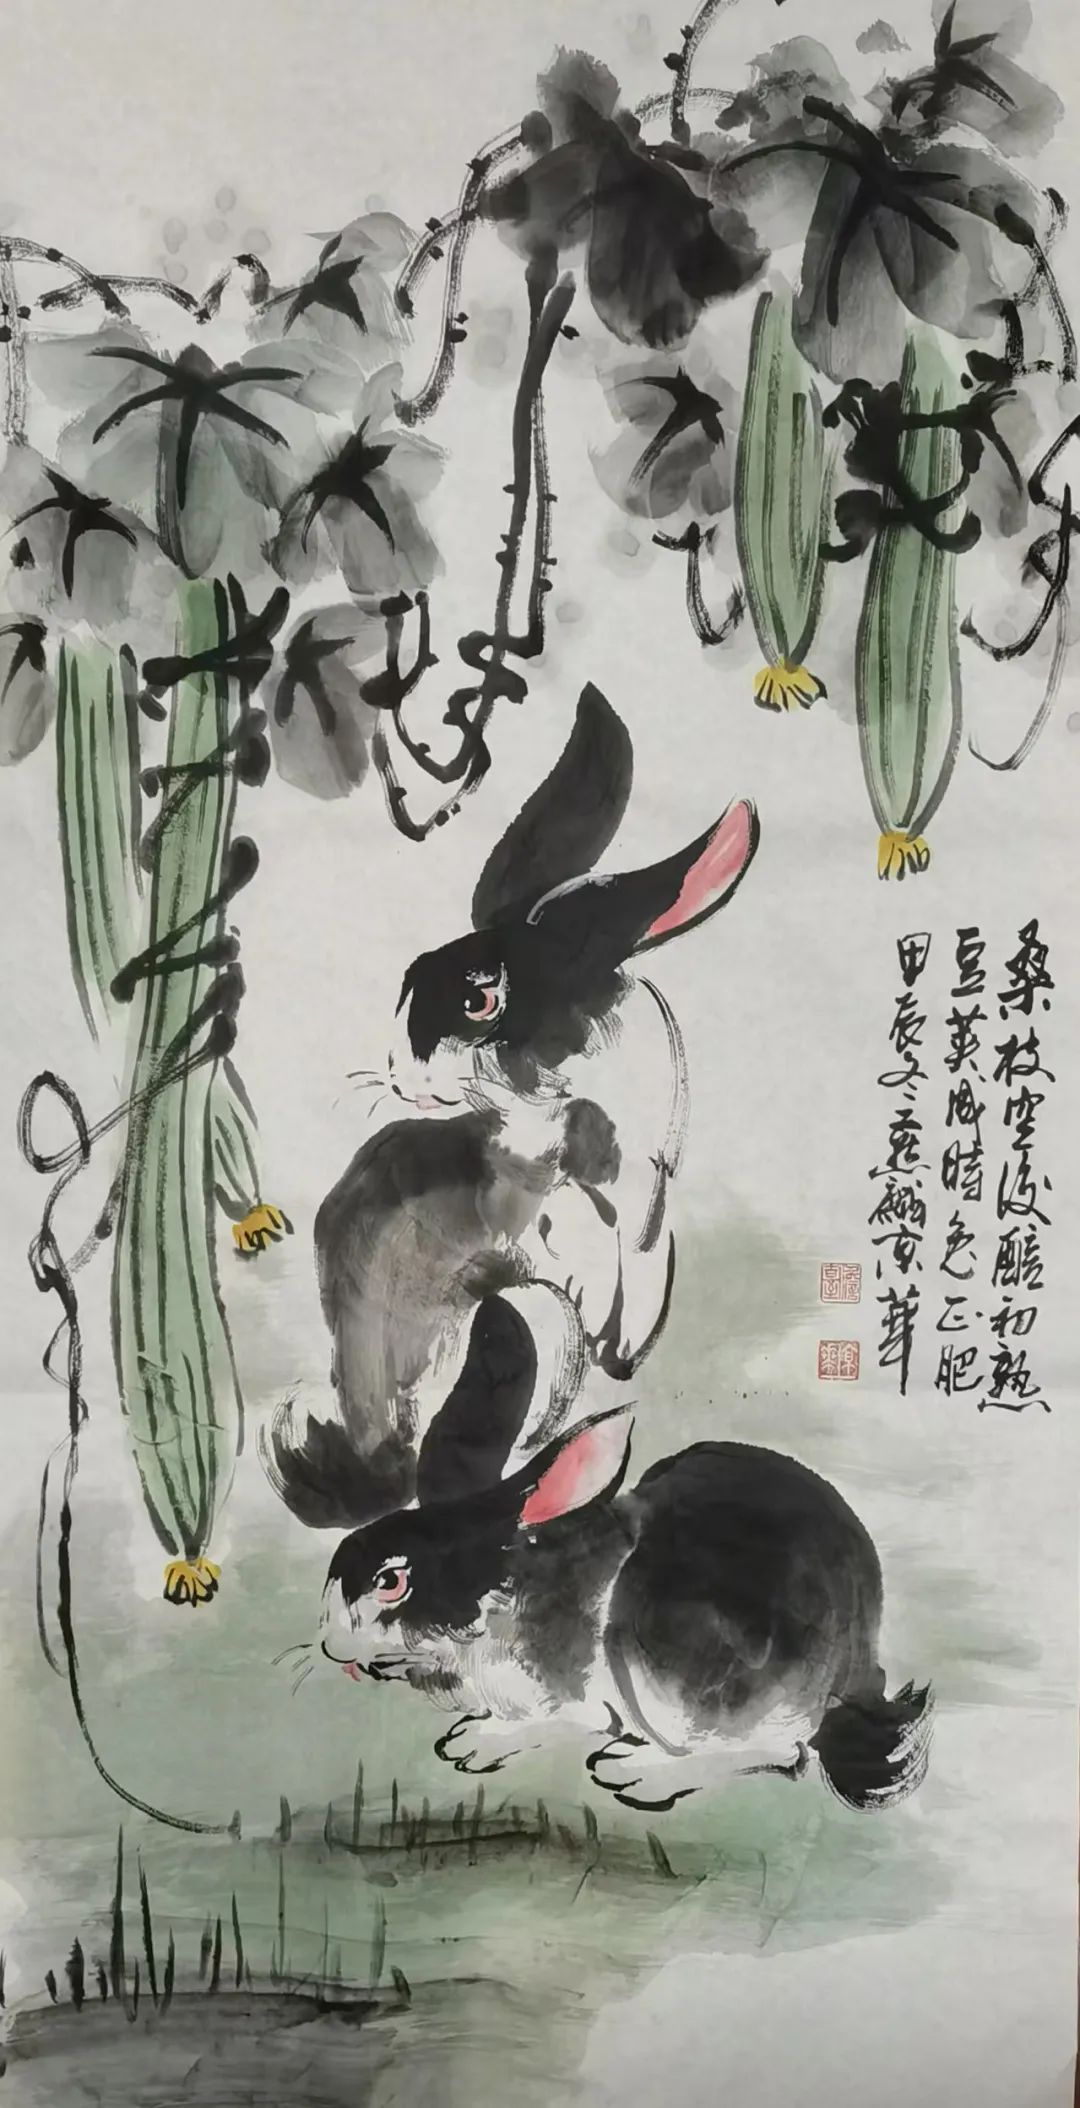 桑枝空後醅初熟
豆莢成時兔正肥
甲辰冬京華